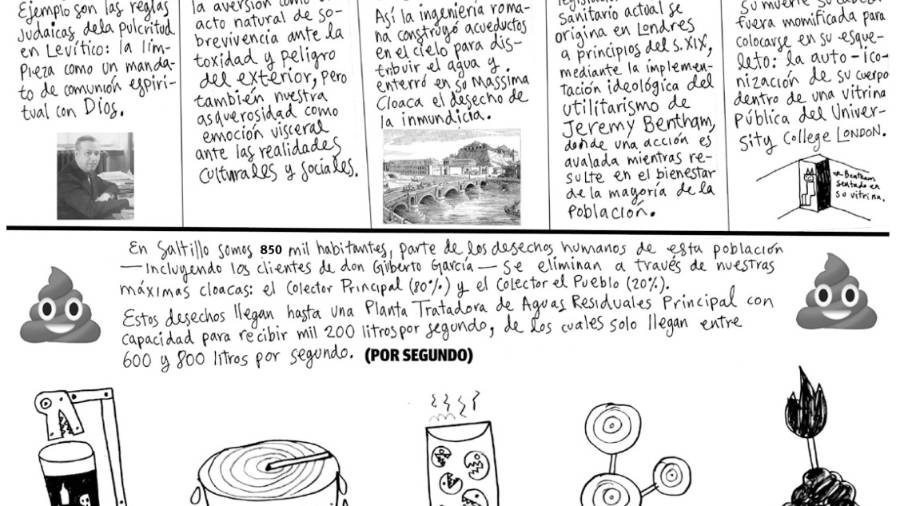 Ejemplo son las reglas
Judaicas dela Pulcritud
en Levítico: la lim-
pieza como un manda-
to de comunión espiri-
tual con Dios.
la aversión como
acto natural de so-
brevivencia ante la
toxidad y Peligro
del exterior, Pero
también nuestra
asquerosidad como
emoción visceral
ante las realidades
culturales y sociales.
Así la ingeniería roma-
na construyó acueductos
en el cielo para dis-
tribuir el agua y
enterró en su Massima
Cloaca el desecho de
la inmundicia.
Sanitario actual se
origina en Londres
a principios del S.XIX,
mediante la implemen-
tación ideológica del
utilitarismo de
Jeremy Bentham,
donde una acción es
avalada mientras re-
sulte en el bienestar
de la mayoría de la
Población.
su muerte su cabeza
fuera momificada para
colocarse en su esque-
leto: la auto-ico-
nización de su cuerpo
dentro de una vitrina
Pública del Univer-
sity College LONDON.
Bentham
sentado en
su vitrina.
En Saltillo somos 850 mil habitantes, parte de los desechos humanos de esta población
— Incluyendo los clientes de don Gilberto García — se eliminan a través de nuestras
máximas cloacas: el Colector Principal (80%) y el Colector el Pueblo (20%).
Estos desechos llegan hasta una Planta Tratadora de Aguas Residuales Principal con
capacidad para recibir mil 200 litros por segundo, de los cuales solo llegan entre
600 y 800 litros por segundo. (POR SEGUNDO)